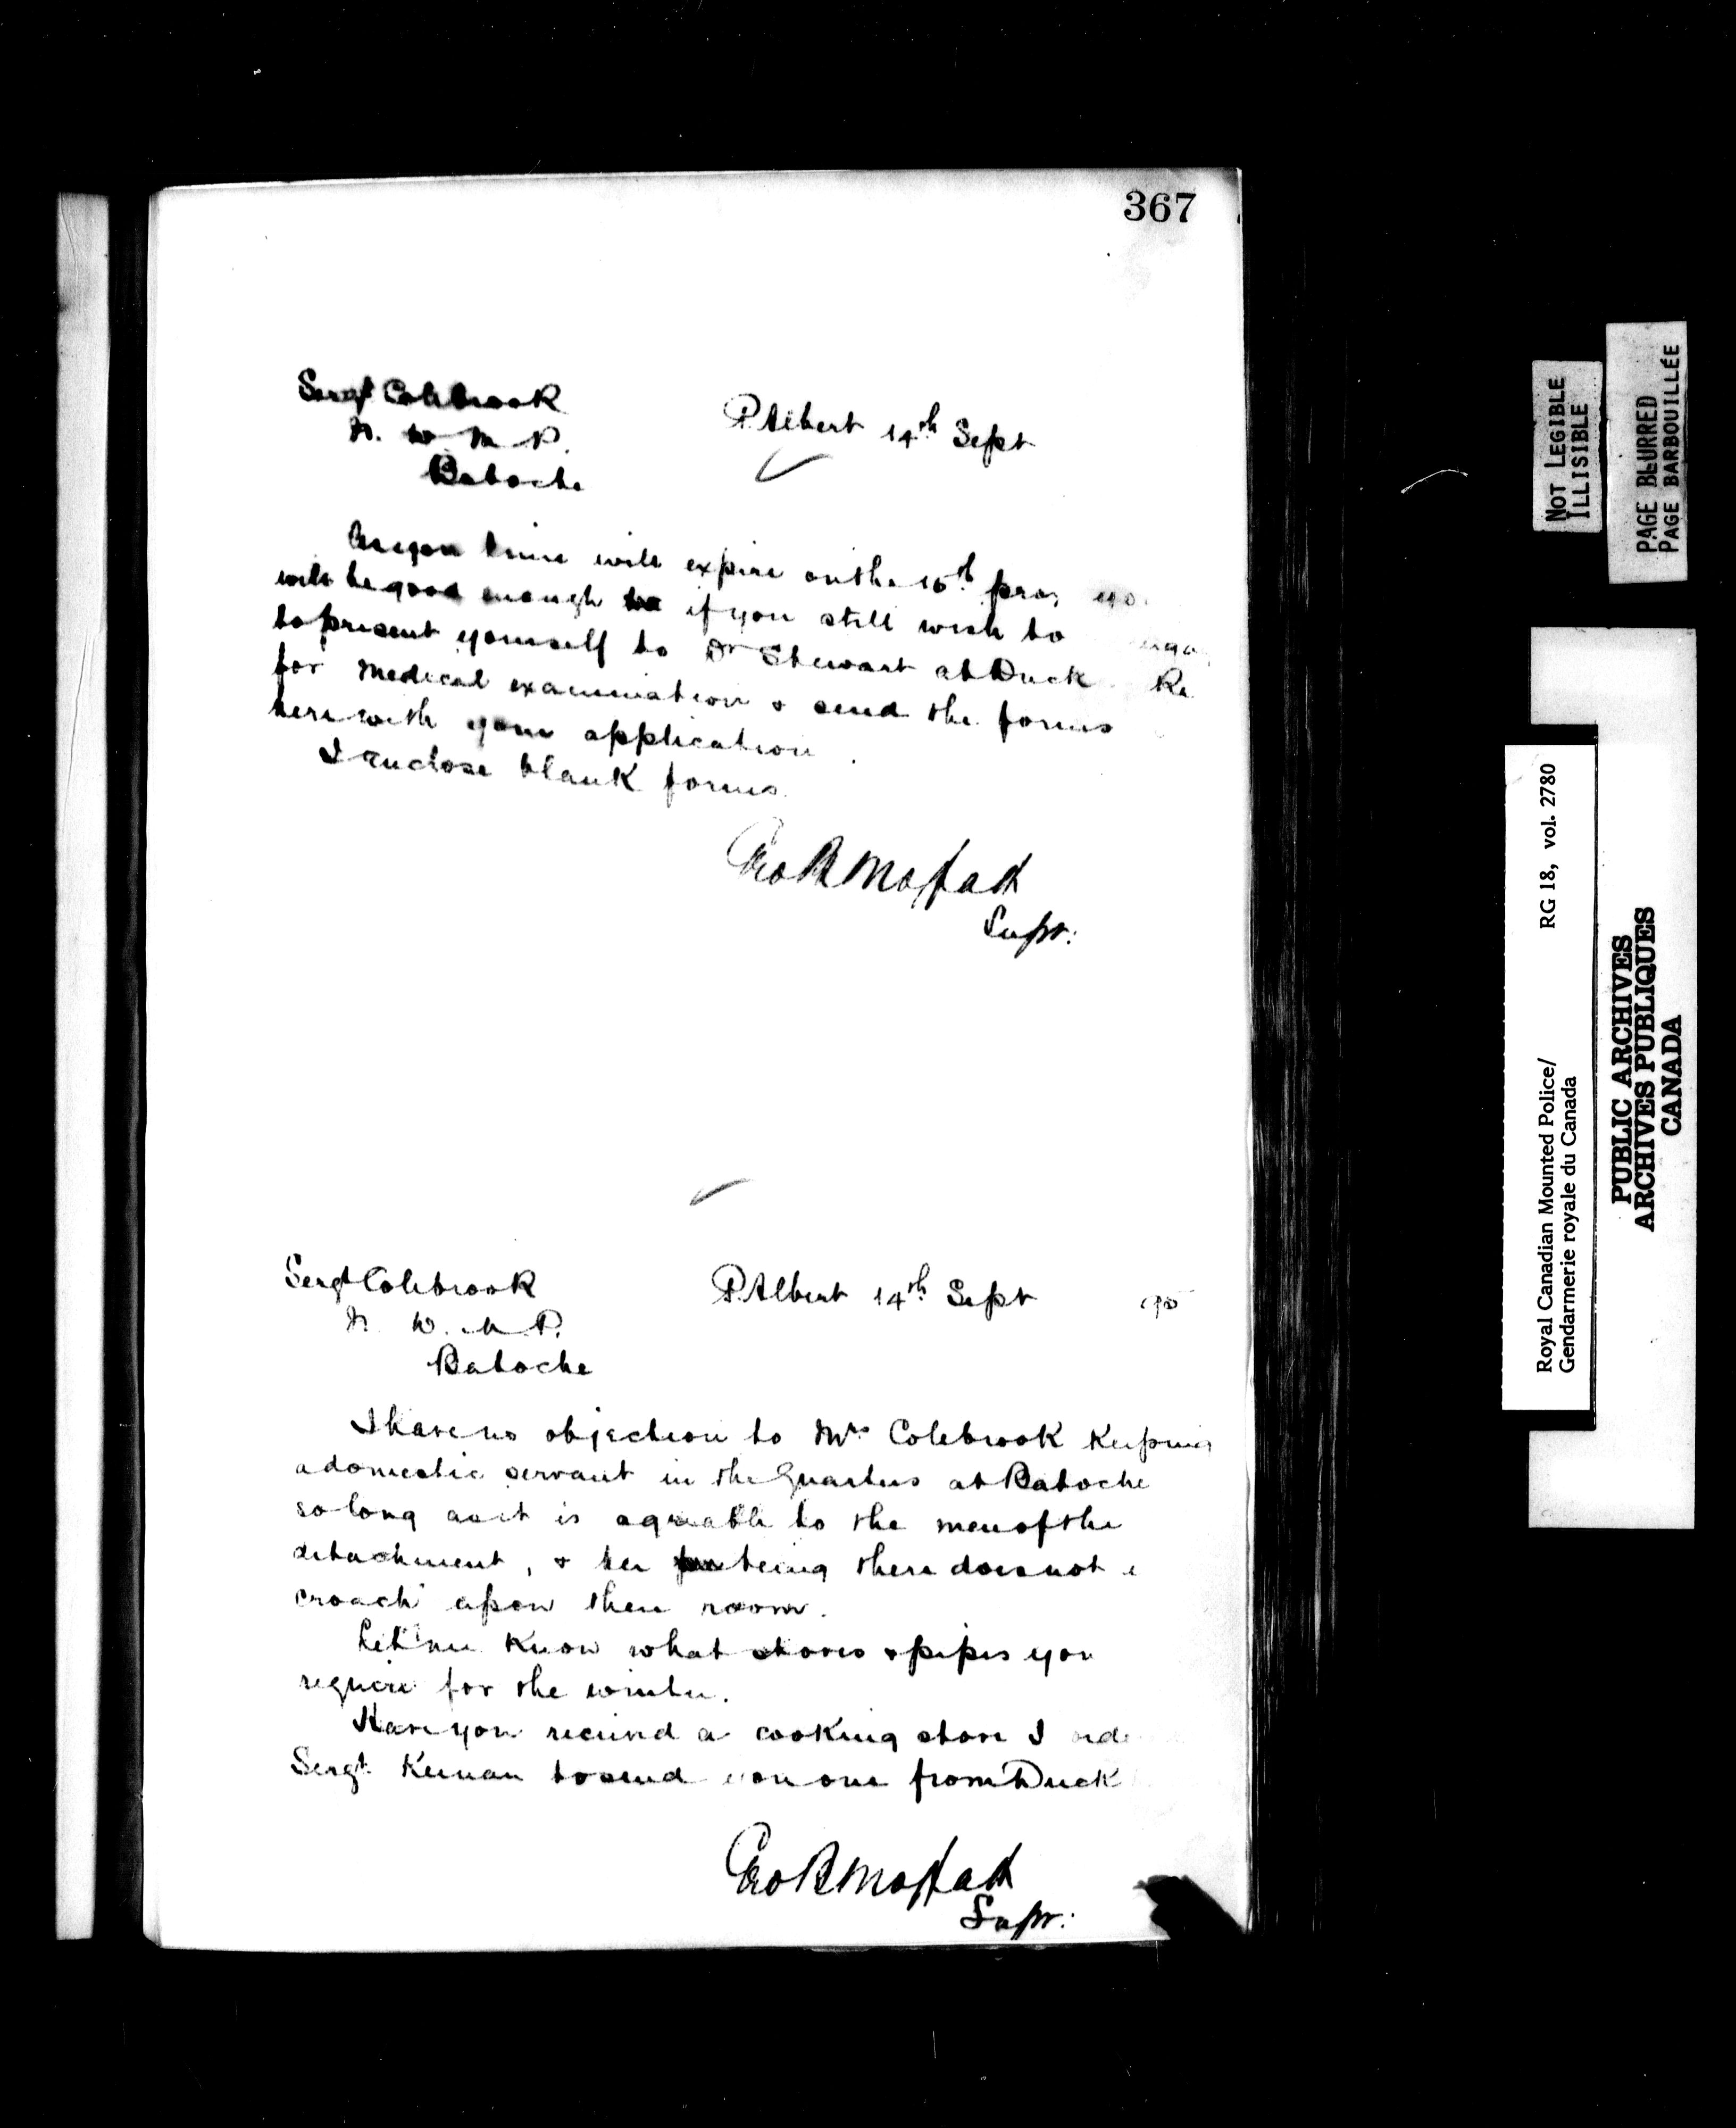 367
Sergt Colebrook
P. Albert 14th Sept
N. W. M. P.
Batoche
As your time will expire on the 10th prox yo
will be good enough if you still wish to engag
to present yourself to Dr Stewart at Duck
for medical examination & send the forms
here with your application
I enclose blank forms.
Geo B Moffatt
Supt.
Sergt Colebrook
P. Albert 14th Sept 90
N. W. M. P.
Batoche
I have no objection to Mrs Colebrook keeping
a domestic servant in the Quarters at Batoche
so long as it is agreable to the men of the
detachment, & her being there does not e
croach upon their room.
Let me know what stoves & pipes you
require for the winter.
Have you received a cooking stove I orde
Sergt Keenan to send you one from Duck
Geo B Moffatt
Supt.
NOT LEGIBLE
ILLISIBLE
PAGE BLURRED
PAGE BARBOUILLÉE
Royal Canadian Mounted Police/ RG 18, vol. 2780
Gendarmerie royale du Canada
PUBLIC ARCHIVES
ARCHIVES PUBLIQUES
CANADA